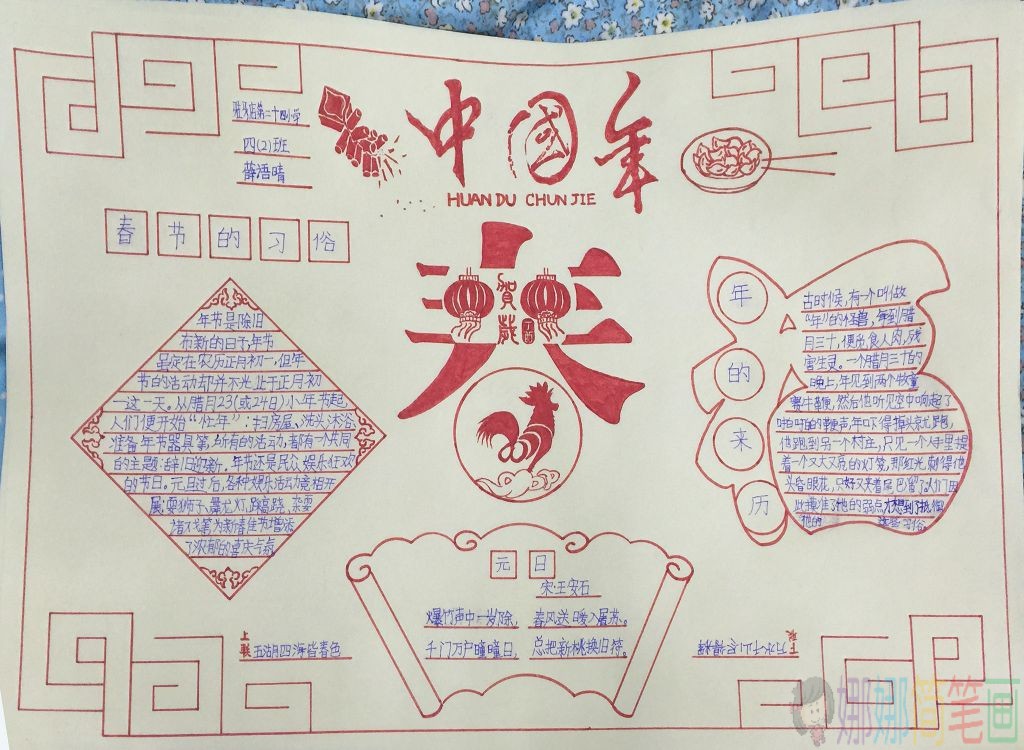 中国年
HUAN DU CHUN JIE
驻马店第二十四小学
四(2)班
薛语晴
春节的习俗
春
贺岁
丁酉
年节是除旧
布新的日子,年节
虽定在农历正月初一,但年
节的活动却并不光止于正月初
一这一天。从腊月23(或24日)小年节起,
人们便开始“忙年”:扫房屋、洗头沐浴、
准备年节器具等,所有的活动,都有一个共同
的主题:辞旧迎新。年节还是民众娱乐狂欢
的节日。元旦过后,各种娱乐活动竞相开
展:耍狮子、舞龙灯、踩高跷、杂耍
诸戏等为新春佳节增添
了浓郁的喜庆气氛
年的来历
古时候,有一个叫做
“年”的怪兽,每到腊
月三十,便出食人肉,残
害生灵。一个腊月三十的
晚上,年见到两个牧童
赛牛鞭,然后他听见空中响起了
啪啪的鞭声,年吓得掉头就跑,
他跑到另一个村庄,只见一个大门里提
着一个又大又亮的灯笼,那红光刺得他
头昏眼花,只好又夹着尾巴溜了,人们因
此摸准了他的弱点,才想到了抵御
他的 这些习俗
元日
宋·王安石
爆竹声中一岁除,春风送暖入屠苏。
千门万户瞳瞳日,总把新桃换旧符。
上联
五湖四海皆春色
下联
万水千山
娜娜简笔画